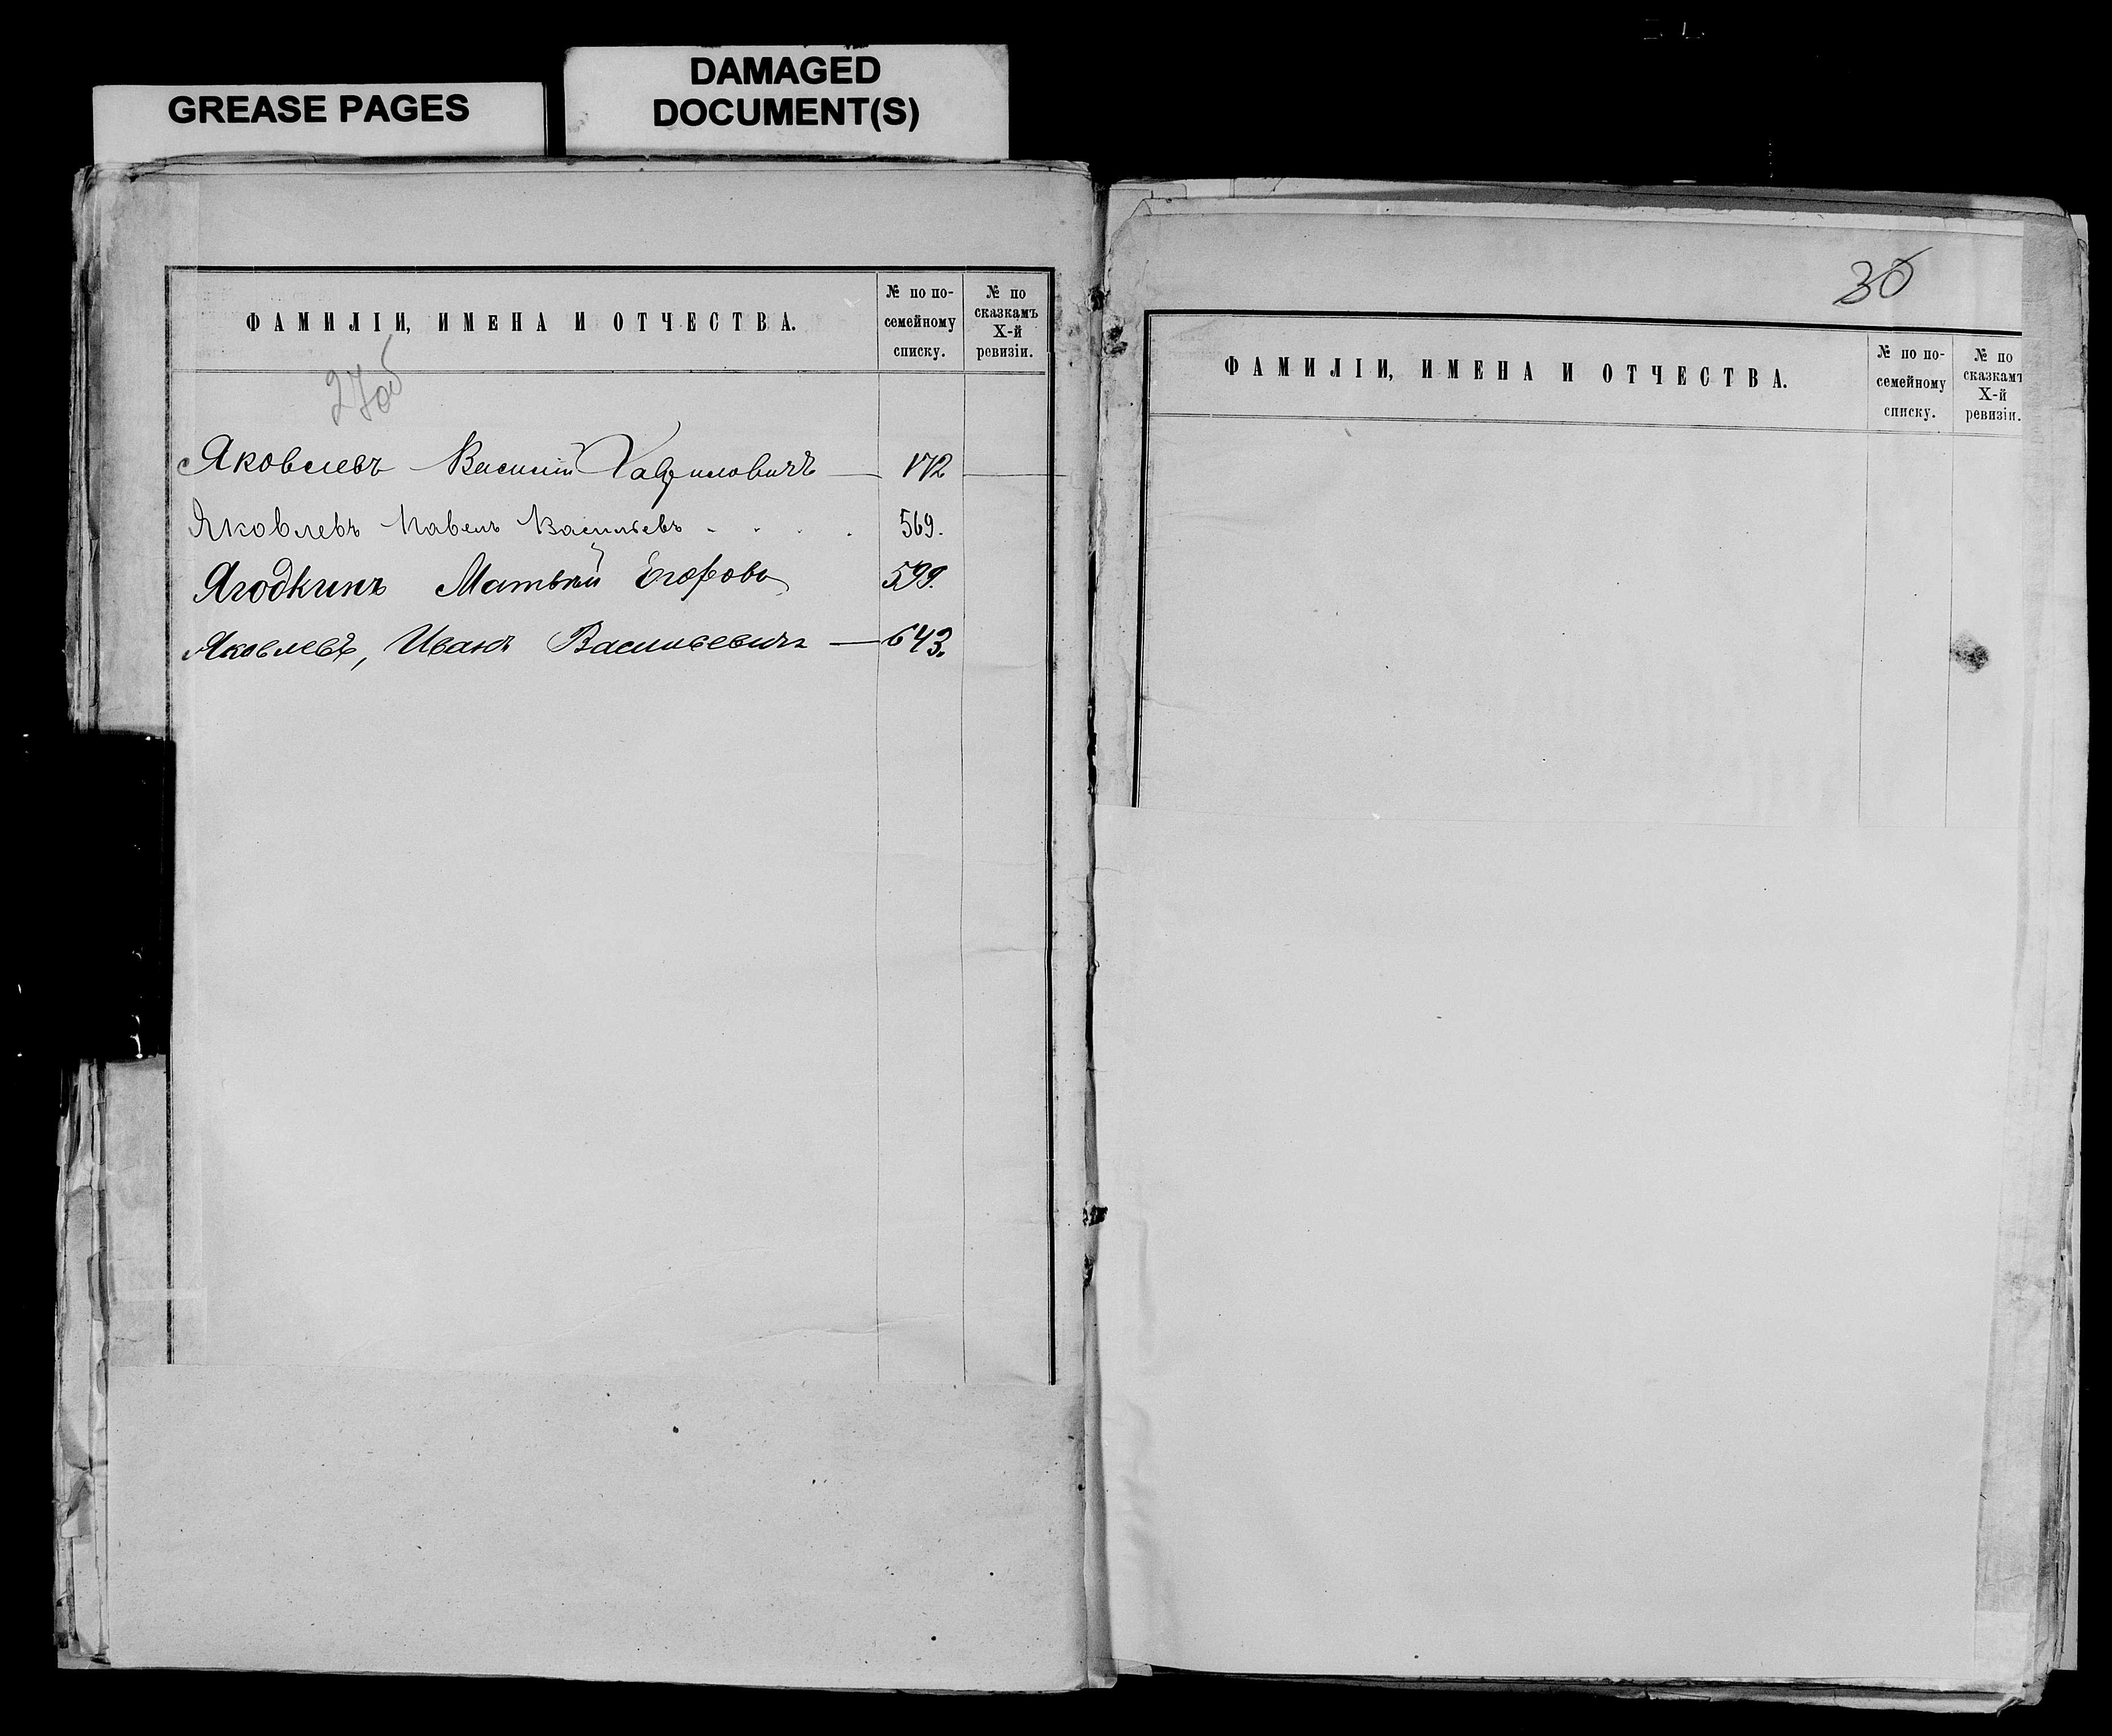 GREASE PAGES
DAMAGED
DOCUMENT(S)
ФАМИЛІИ, ИМЕНА И ОТЧЕСТВА.
№ по по-
семейному
списку.
№ по
сказкамъ
X-й
ревизіи.
27об
Яковлевъ Василій Гавриловичъ — 172
Яковлевъ Павелъ Васильевъ - . . . 569.
Ягодкинъ Матвѣй Егоровъ 599.
Яковлевъ, Иванъ Васильевичъ — 643.
30
ФАМИЛІИ, ИМЕНА И ОТЧЕСТВА.
№ по по-
семейному
списку.
№ по
сказкамъ
X-й
ревизіи.